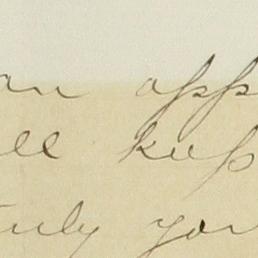 an opp
ll keep
truly you